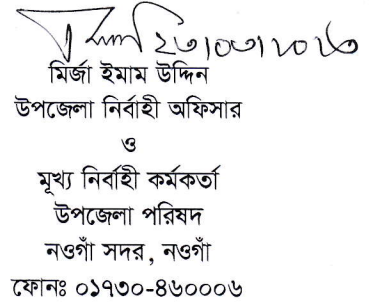 ২৩/০৩/২০২৩
মির্জা ইমাম উদ্দিন
উপজেলা নির্বাহী অফিসার
ও
মূখ্য নির্বাহী কর্মকর্তা
উপজেলা পরিষদ
নওগাঁ সদর, নওগাঁ
ফোনঃ ০১৭৩০-৪৬০০০৬